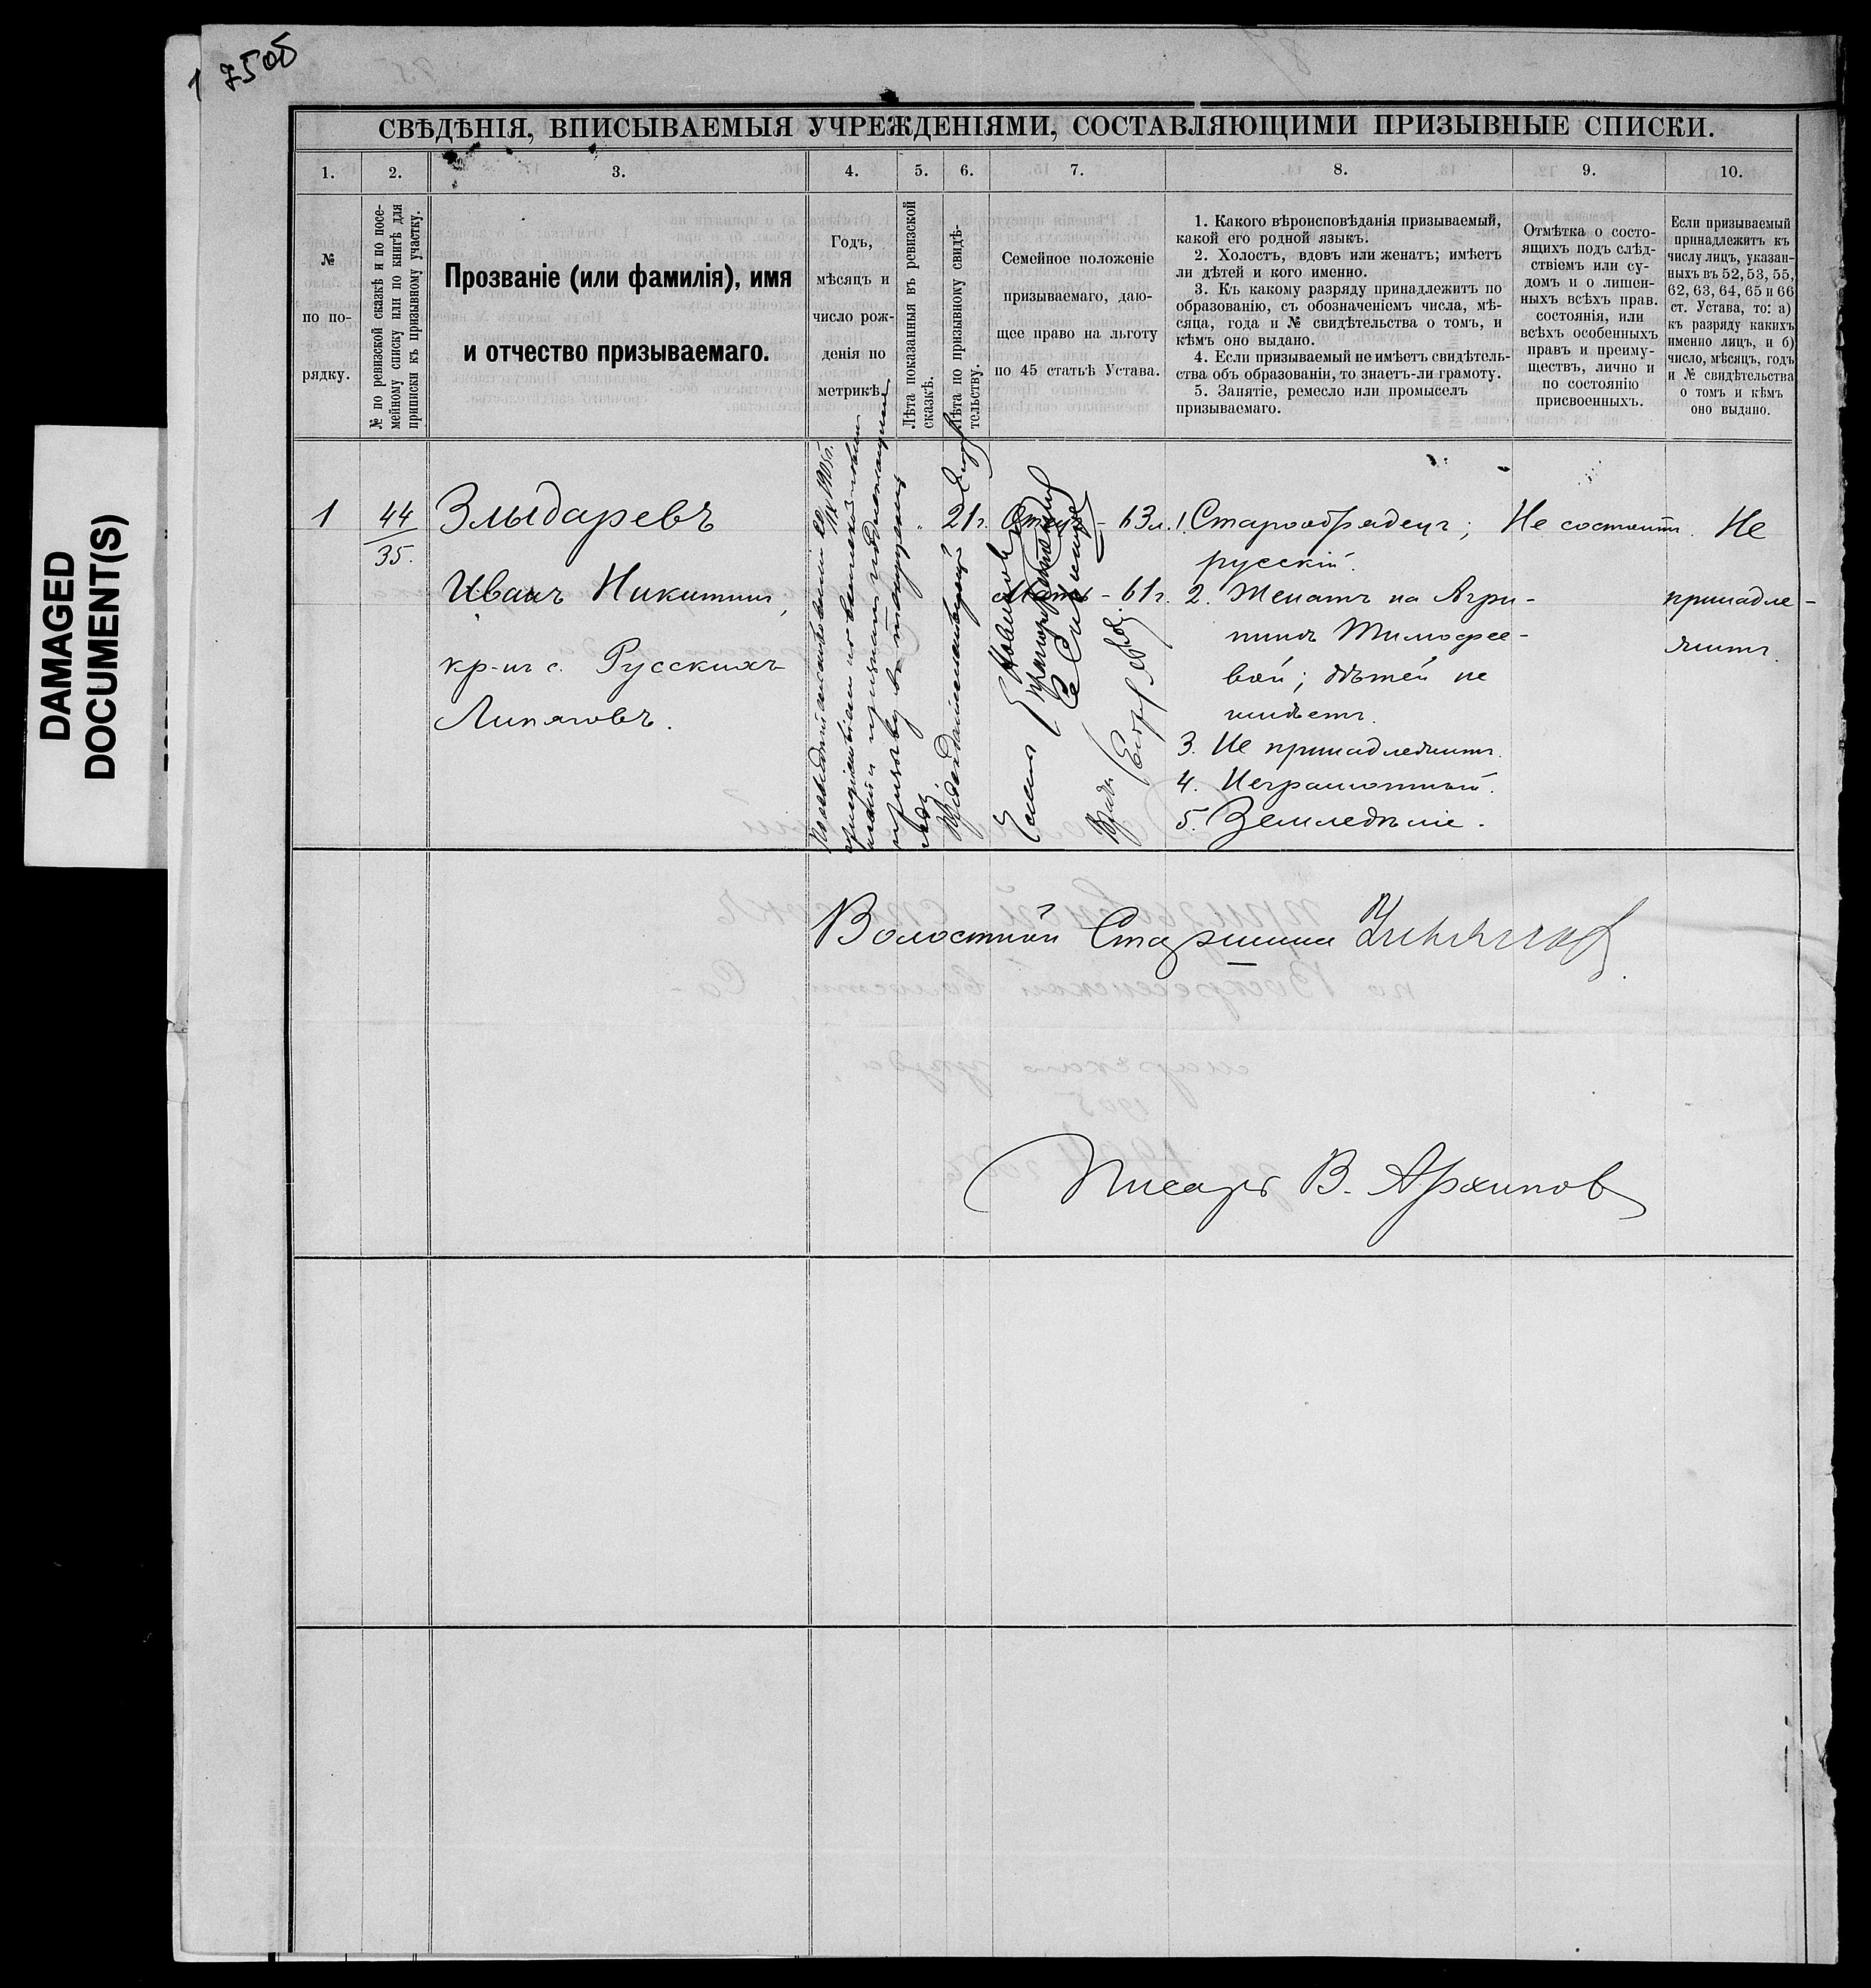 DAMAGED
DOCUMENT(S)
1
7505
СВѢДѢНІЯ, ВПИСЫВАЕМЫЯ УЧРЕЖДЕНІЯМИ, СОСТАВЛЯЮЩИМИ ПРИЗЫВНЫЕ СПИСКИ.
1.
2.
3.
4.
5.
6.
7.
8.
9.
10.
№
по по-
рядку.
№ по ревизской сказкѣ и по посе-
мейному списку или по книгѣ для
приписки къ призывному участку.
Прозваніе (или фамилія), имя
и отчество призываемаго.
Годъ,
мѣсяцъ и
число рож-
денія по
метрикѣ.
Лѣта показанныя въ ревизской
сказкѣ.
Лѣта по призывному свидѣ-
тельству.
Семейное положеніе
призываемаго, даю-
щее право на льготу
по 45 статьѣ Устава.
1. Какого вѣроисповѣданія призываемый,
какой его родной языкъ.
2. Холостъ, вдовъ или женатъ; имѣетъ
ли дѣтей и кого именно.
3. Къ какому разряду принадлежитъ по
образованію, съ обозначеніемъ числа, мѣ-
сяца, года и № свидѣтельства о томъ, и
кѣмъ оно выдано.
4. Если призываемый не имѣетъ свидѣтель-
ства объ образованіи, то знаетъ-ли грамоту.
5. Занятіе, ремесло или промыселъ
призываемаго.
Отмѣтка о состо-
ящихъ подъ слѣд-
ствіемъ или су-
домъ и о лишен-
ныхъ всѣхъ прав.
состоянія, или
всѣхъ особенныхъ
правъ и преиму-
ществъ, лично и
по состоянію
присвоенныхъ.
Если призываемый
принадлежитъ къ
числу лицъ, указан-
ныхъ въ 52, 53, 55,
62, 63, 64, 65 и 66
ст. Устава, то: а)
къ разряду какихъ
именно лицъ, и б)
число, мѣсяцъ, годъ
и № свидѣтельства
о томъ и кѣмъ
оно выдано.
1
44
35.
Злыдаревъ
Иванъ Никитинъ,
кр-нъ с. Русскихъ
Липяговъ.
21 г.
Отец - 63 л.
Мать - 61 г.
1. Старообрядецъ;
русскій.
2. Женатъ на Агри-
пинѣ Тимофее-
вой; дѣтей не
имѣетъ.
3. Не принадлежитъ.
4. Неграмотный.
5. Земледѣліе.
Не состоитъ.
Не
принадле-
житъ.
Волостной Старшина
Писарь В. Архипов